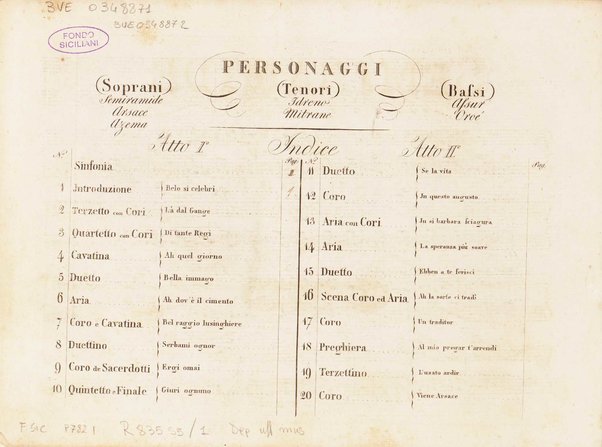 BVE 0348871
BVE 0348872
FONDO
SICILIANI
PERSONAGGI
(Soprani)
Semiramide
Arsace
Azema
(Tenori)
Idreno
Mitrane
(Bassi)
Assur
Oroe
Atto Iº
Indice
Atto IIº
Nº
Pag.
Sinfonia
1 Introduzione Belo si celebri 1
2 Terzetto con Cori Là dal Gange
3 Quartetto con Cori Di tante Regi
4 Cavatina Ah quel giorno
5 Duetto Bella immago
6 Aria Ah dov'è il cimento
7 Coro e Cavatina Bel raggio lusinghiere
8 Duettino Serbami ognor
9 Coro de Sacerdotti Ergi omai
10 Quintetto e Finale Giuri ognuno
Nº
Pag.
11 Duetto Se la vita
12 Coro In questo augusto
13 Aria con Cori In si barbara sciagura
14 Aria La speranza più soave
15 Duetto Ebben a te ferisci
16 Scena Coro ed Aria Ah la sorte ci tradì
17 Coro Un traditor
18 Preghiera Al mio pregar t'arrendi
19 Terzettino L'usato ardir
20 Coro Viene Arsace
F SIC P782 1 R 835 55/1 Dep uff mus